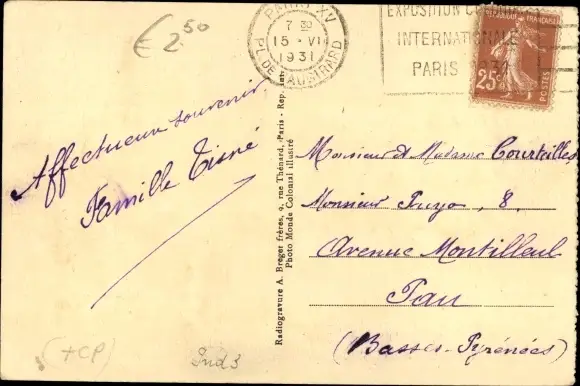 € 2.50
PARIS XV
7 30
15 - VI
1931
PL. DE VAUGIRARD
EXPOSITION COLONIALE
INTERNATIONALE
PARIS 1931
REPUBLIQUE FRANÇAISE
25c
POSTES
Affectueux souvenir
Famille Tisné
Radiogravure A. Breger frères, 9, rue Thénard, Paris - Rep. Int.
Photo Monde Colonial Illustré
Monsieur et Madame Courteilles
Monsieur Puyo, 8,
Avenue Montilleul
Pau
(Basses-Pyrénées)
(TCP)
Ind 3